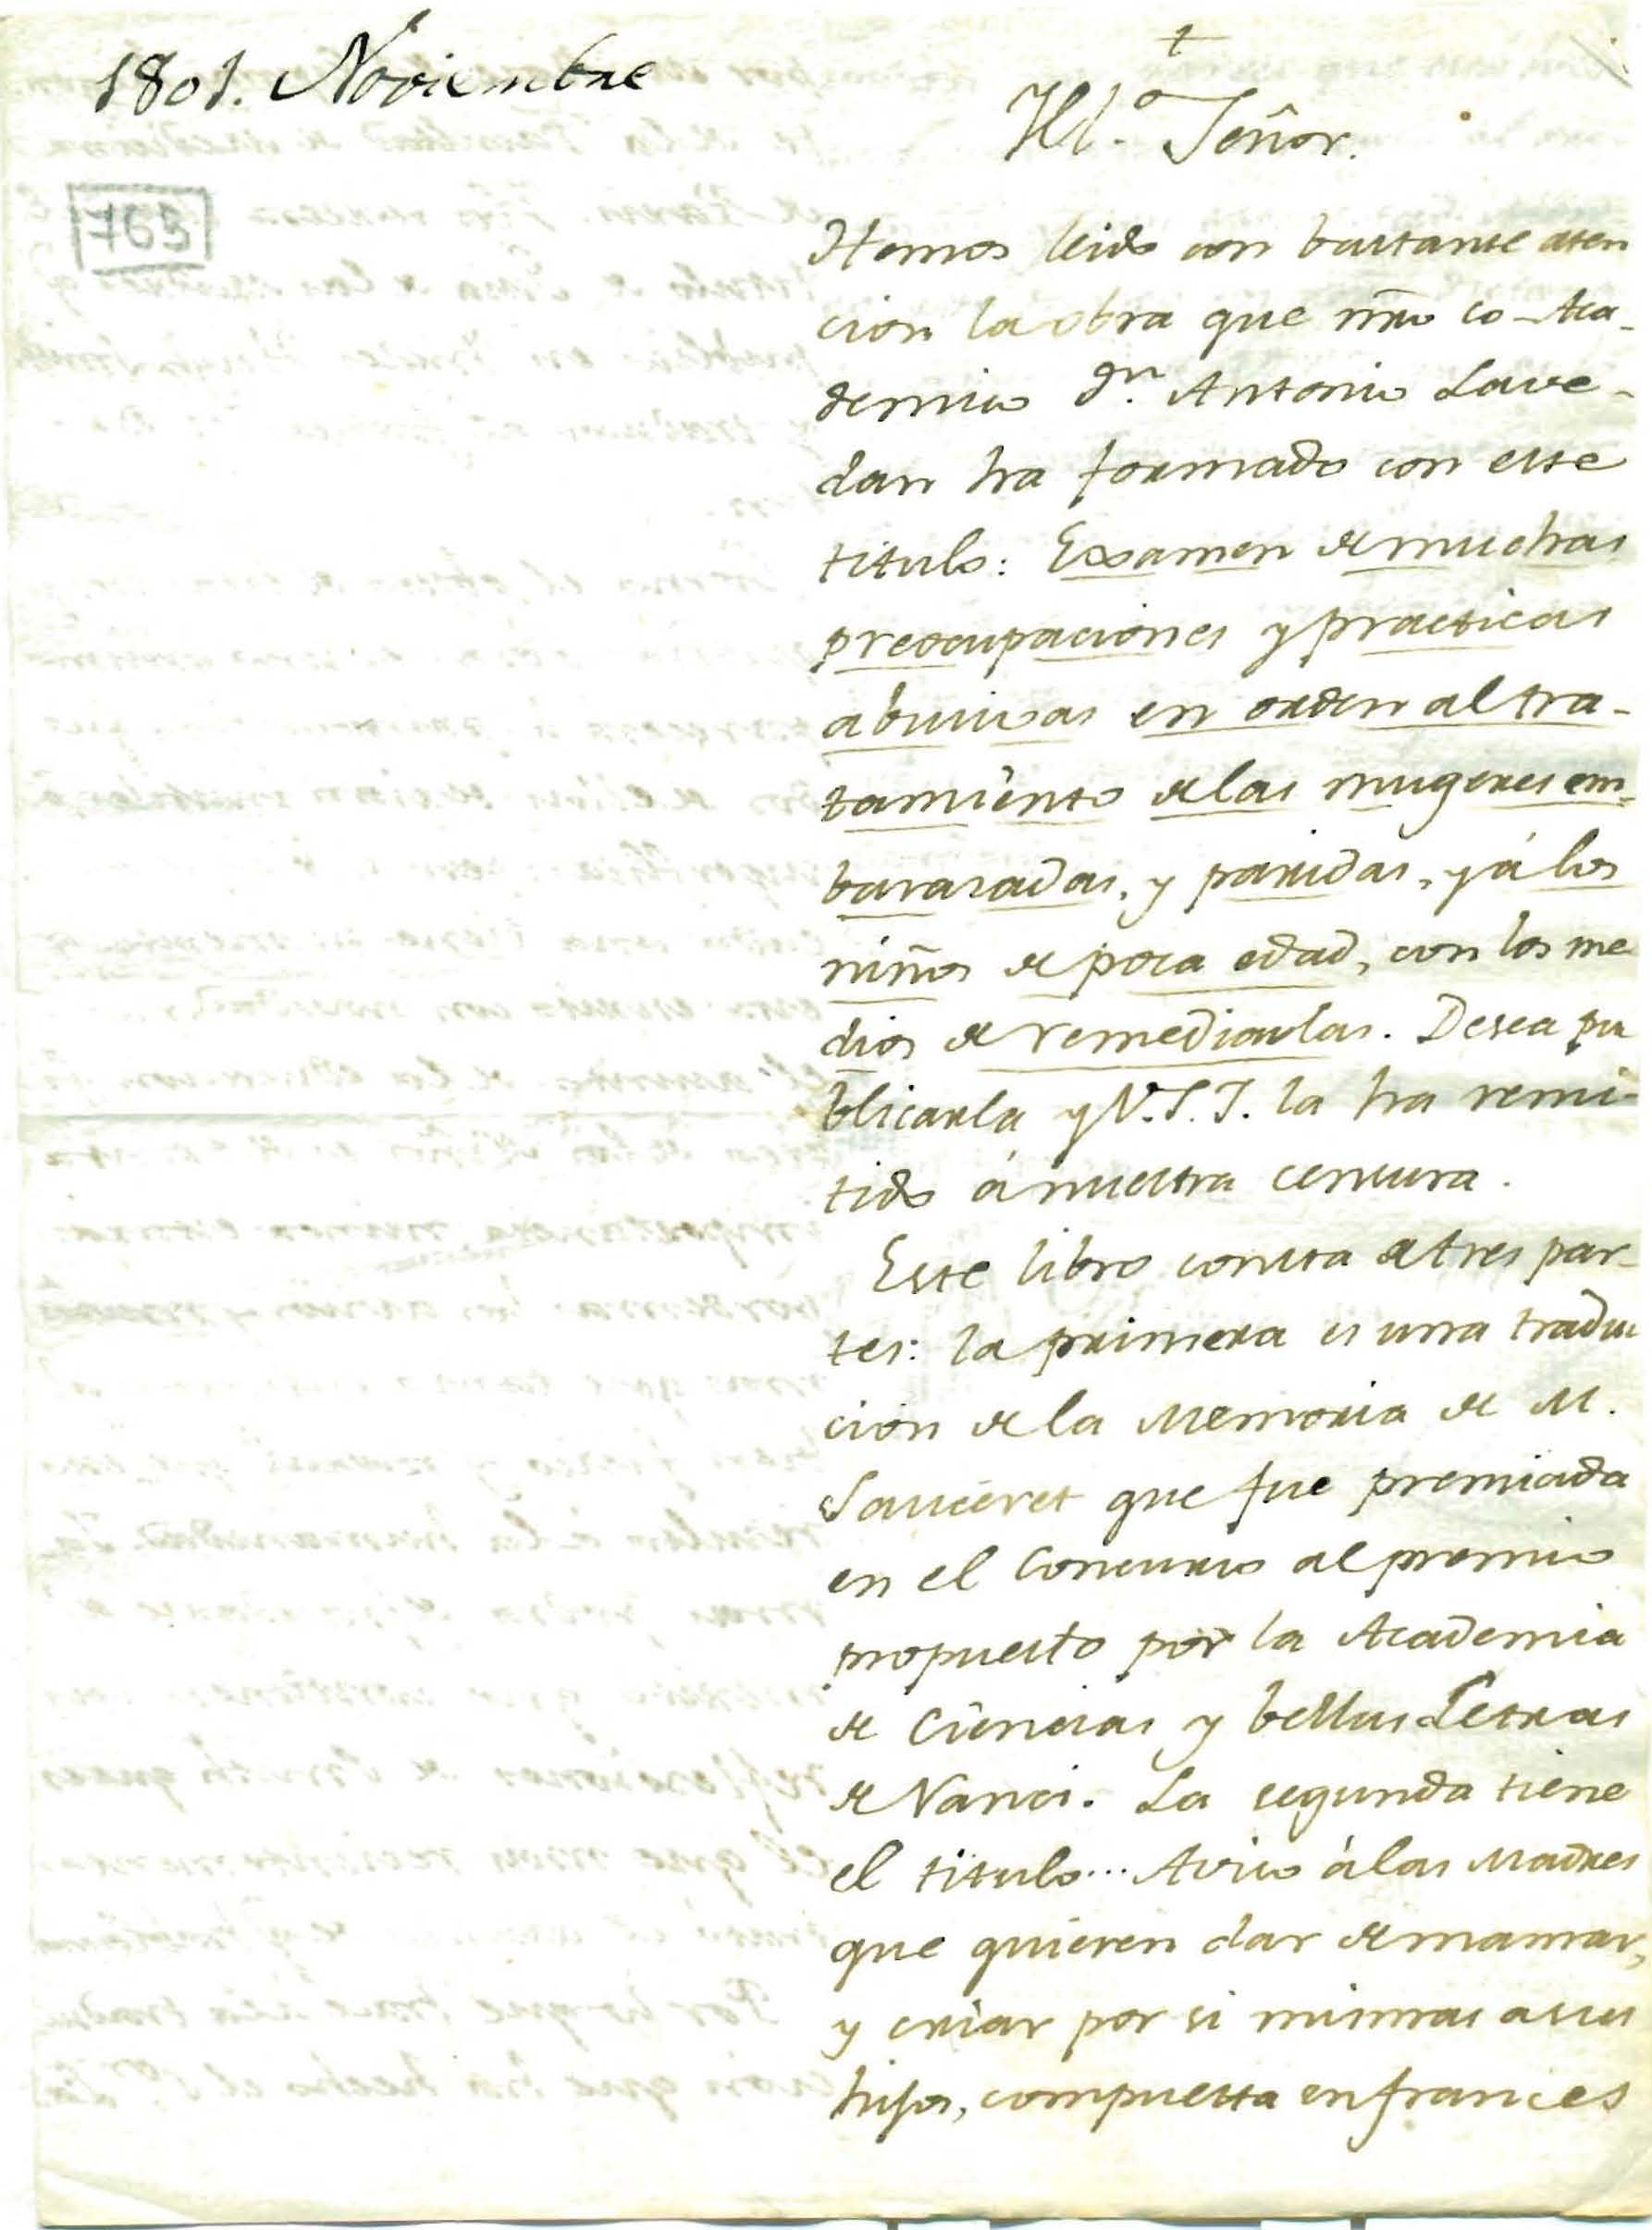 1801. Noviembre
765
+
Yll.º Señor.
Hemos leido con bastante aten
cion la obra que nrõ co-Aca-
demico Dn. Antonio Lave-
dan ha formado con este
titulo: Examen de muchas
preocupaciones y practicas
abusivas en orden al tra-
tamiento de las mugeres em-
barasadas, y paridas, y á los
niños de poca edad, con los me
dios de remediarlas. Desea pu
blicarla y V.S.I. la ha remi-
tido á nuestra censura.
Este libro consta de tres par-
tes: la primera es una traduc
cion de la Memoria de M.
Sauceret que fue premiada
en el Concurso al premio
propuesto por la Academia
de Ciencias y bellas Letras
de Nanci. La segunda tiene
el titulo... Aviso á las Madres
que quieren dar de mamar,
y criar por si mismas a sus
hijos, compuesta en frances